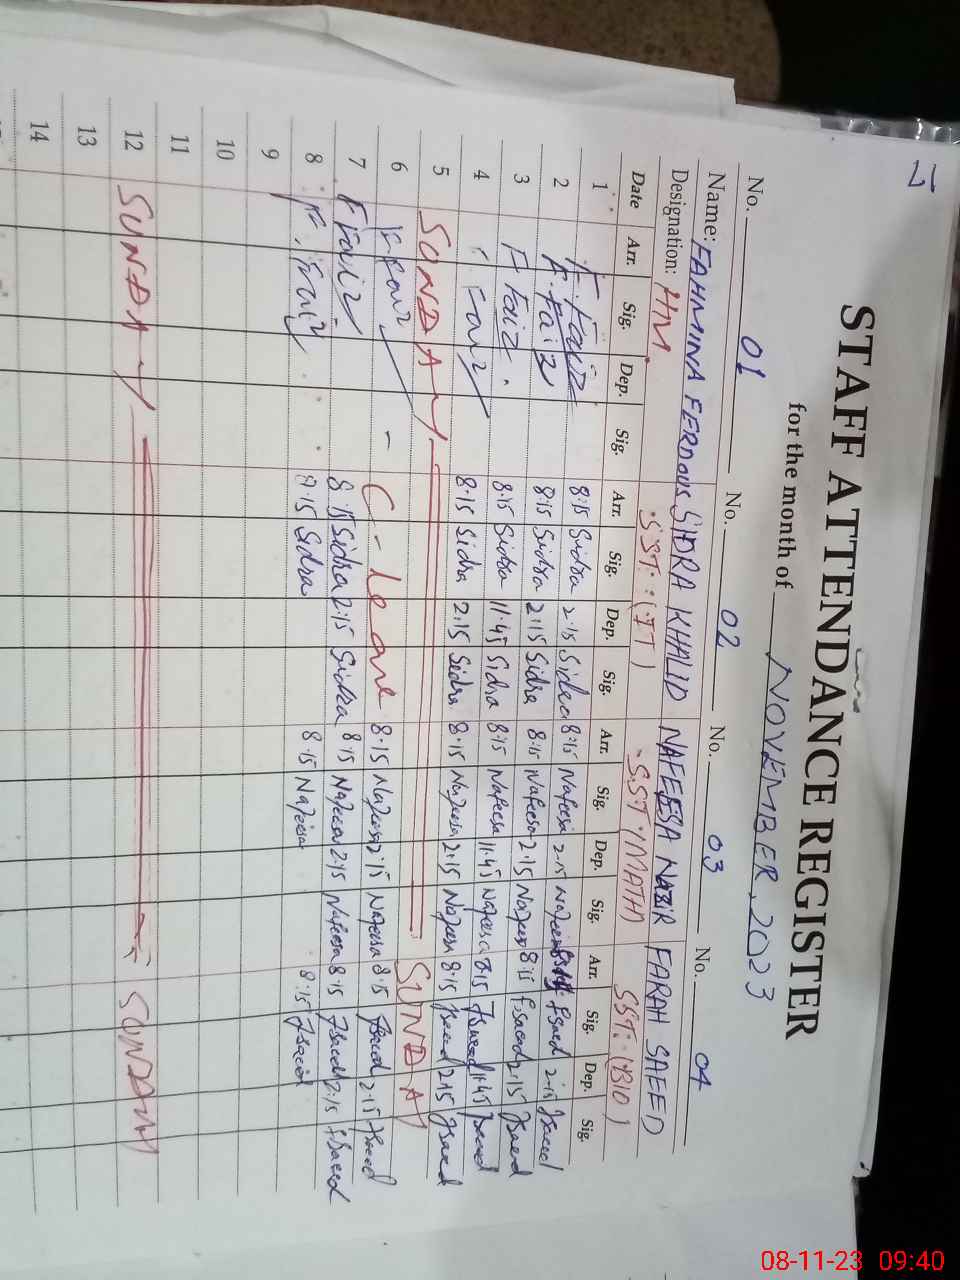 STAFF ATTENDANCE REGISTER
for the month of NOVEMBER, 2023
No. 01 No. 02 No. 03 No. 04
Name: FAHMINA FERDOUS SIDRA KHALID NAFEESA NAZIR FARAH SAEED
Designation: HM SST. (IT) S.S.T. (MATH) SST. (BIO)
Date Arr. Sig. Dep. Sig. Arr. Sig. Dep. Sig. Arr. Sig. Dep. Sig. Arr. Sig. Dep. Sig.
1 F. Faiz 8:15 Sidra 2:15 Sidra 8:15 Nafeesa 2:15 Nafeesa fsaed 2:15 fsaeed
2 F. Faiz 8:15 Sidra 2:15 Sidra 8:15 Nafeesa 2:15 Nafeesa 8:15 fsaeed 2:15 fsaeed
3 F Faiz 8:15 Sidra 11:45 Sidra 8:15 Nafeesa 11:45 Nafeesa 8:15 fsaeed 11:45 fsaeed
4 Faiz 8:15 Sidra 2:15 Sidra 8:15 Nafeesa 2:15 Nafeesa 8:15 fsaeed 2:15 fsaeed
5 SUNDAY SUNDAY
6 F. Faiz - C-leave 8:15 Nafeesa 2:15 Nafeesa 8:15 fsaeed 2:15 fsaeed
7 F Faiz 8:15 Sidra 2:15 Sidra 8:15 Nafeesa 2:15 Nafeesa 8:15 fsaeed 2:15 fsaeed
8 F. Faiz 8:15 Sidra 8:15 Nafeesa 8:15 fsaeed
9
10
11
12 SUNDAY SUNDAY
13
14
08-11-23 09:40